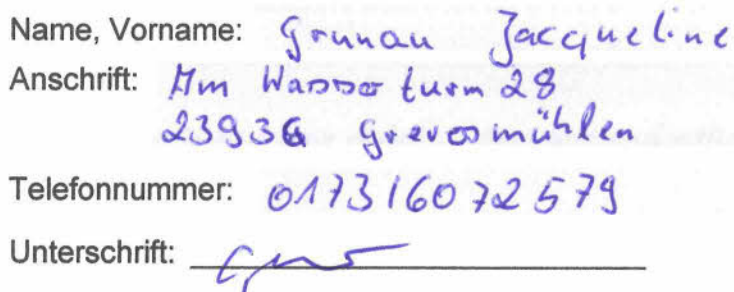 Name, Vorname: Grunau Jacqueline
Anschrift: Am Wasserturm 28
23936 Grevesmühlen
Telefonnummer: 017316072579
Unterschrift: